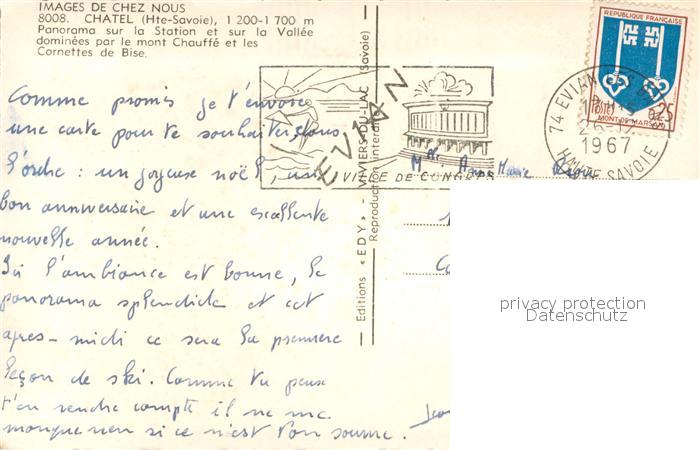 IMAGES DE CHEZ NOUS
8008. CHATEL (Hte-Savoie), 1 200-1 700 m
Panorama sur la Station et sur la Vallée
dominées par le mont Chauffé et les
Cornettes de Bise.
Comme promis je t'envoie
une carte pour te souhaiter, dans
l'ordre : un joyeuse noël, un
bon anniversaire et une excellente
nouvelle année.
Ici l'ambiance est bonne, le
panorama splendide et cet
après-midi ce sera la première
leçon de ski. Comme tu peux
t'en rendre compte il ne me
manque rien si ce n'est ton sourire.
Editions « EDY » - VIVIERS-DU-LAC (Savoie)
Reproduction interdite
EVIAN
VILLE DE CONGRES
REPUBLIQUE FRANÇAISE
POSTES
0,25
MONT-DE-MARSAN
74 EVIAN LES
1967
HAUTE SAVOIE
Marie
privacy protection
Datenschutz